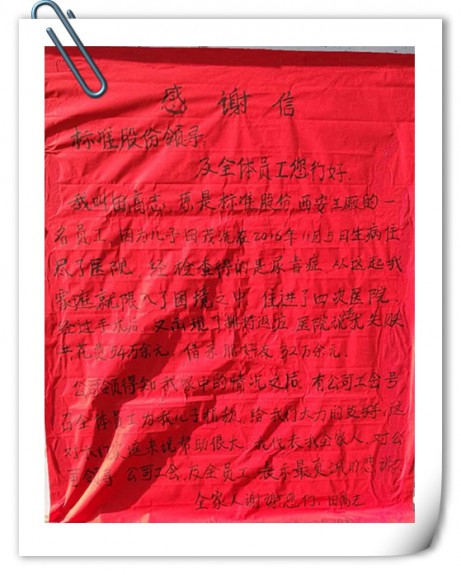 感谢信
标准股份领导:
及全体员工您们好.
我叫田高志, 原是标准股份西安工厂的一
名员工, 因为儿子田茂 在2016年11月5日生病住
进了医院, 经检查得的是尿毒症, 从这起我
家庭就陷入了困境之中, 住进了四次医院,
经过手术后, 又出现了排药 医院说术失败
共花费34万余元, 借亲朋好友32万余元.
公司领得知我家中的情况之后, 有公司工会号
召全体员工为我儿子捐款, 给我们大力的支持, 这
对我们家这来说帮助很大, 我代表我全家人, 对公
司领导, 公司工会, 及全员工, 表示最真诚的感谢
全家人谢谢您们: 田高志